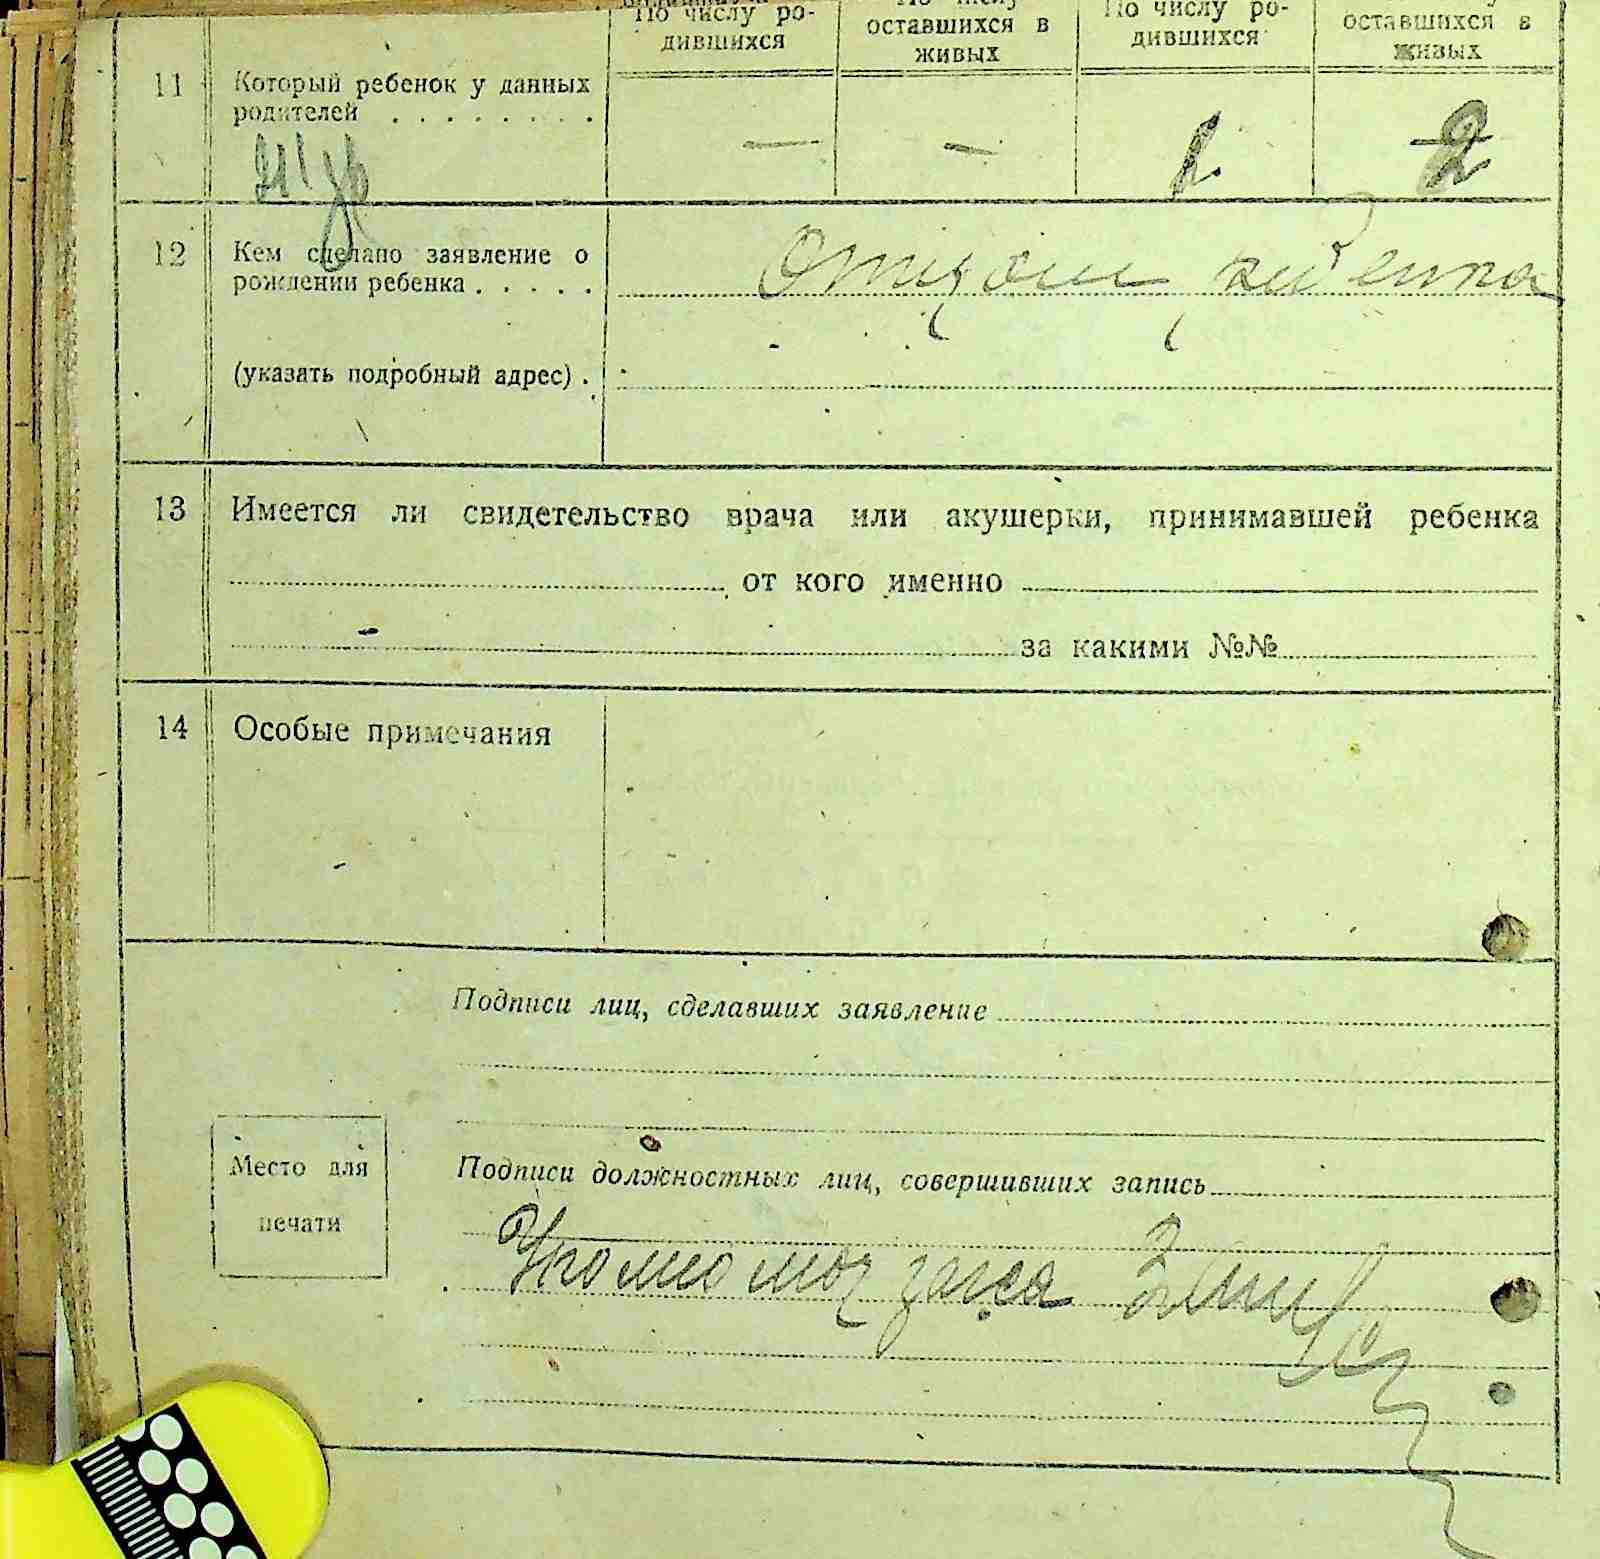 По числу ро- оставшихся в По числу ро- оставшихся в
дившихся живых дившихся живых
11 Который ребенок у данных
родителей . . . . . . . . — — 1. 2
12 Кем сделано заявление о
рождении ребенка . . . . . Отцом ребенка
(указать подробный адрес) .
13 Имеется ли свидетельство врача или акушерки, принимавшей ребенка
от кого именно
за какими №№
14 Особые примечания
Подписи лиц, сделавших заявление
Место для
печати
Подписи должностных лиц, совершивших запись
загса